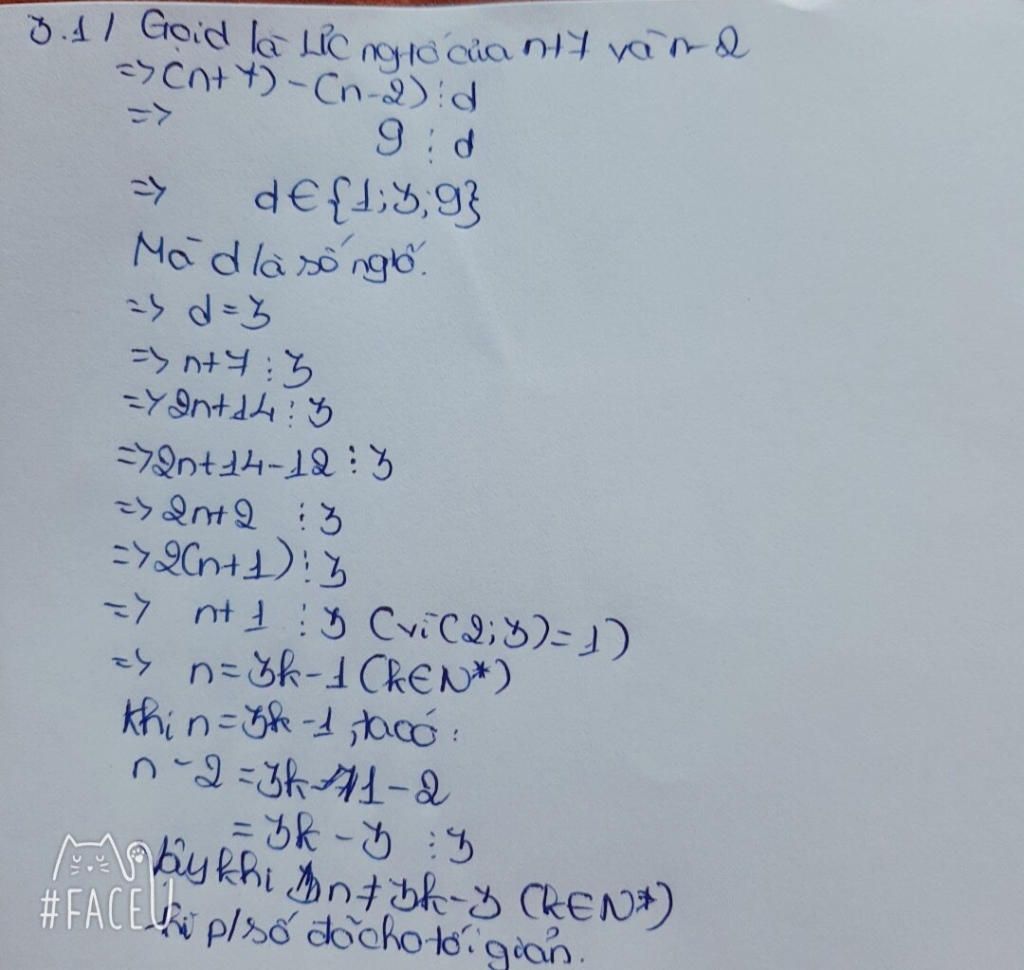 3.1/ Gọi d là ƯC ngtố của n+7 và n-2
=> (n+7)-(n-2)⋮d
=>
9 ⋮ d
=> d∈{1;3;9}
Mà d là số ngtố.
=> d=3
=> n+7⋮3
=> 2n+14⋮3
=> 2n+14-12⋮3
=> 2n+2 ⋮3
=> 2(n+1)⋮3
=> n+1 ⋮3 (vì(2;3)=1)
=> n=3k-1(k∈N*)
Khi n=3k-1, ta có:
n-2=3k-1-2
=3k-3 ⋮3
Vậy khi n≠3k-3 (k∈N*)
thì p/số đã cho tối giản.
#FACEU